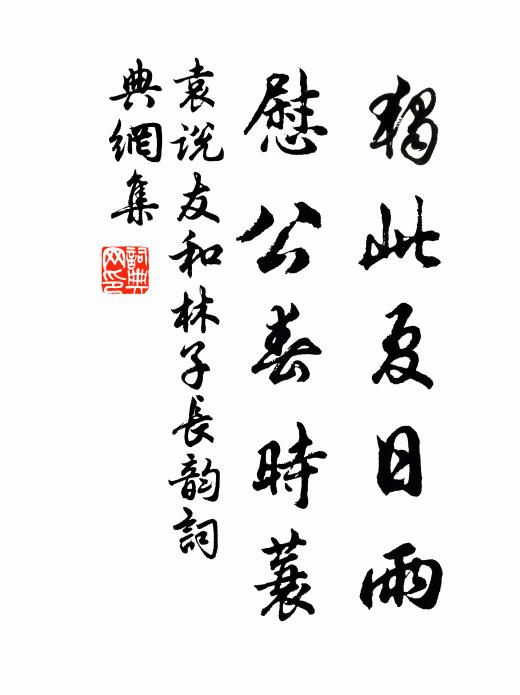 獨此夏日雨
慰公春時蓑
袁說友和林子長韵詞
典網集
詞典
网印